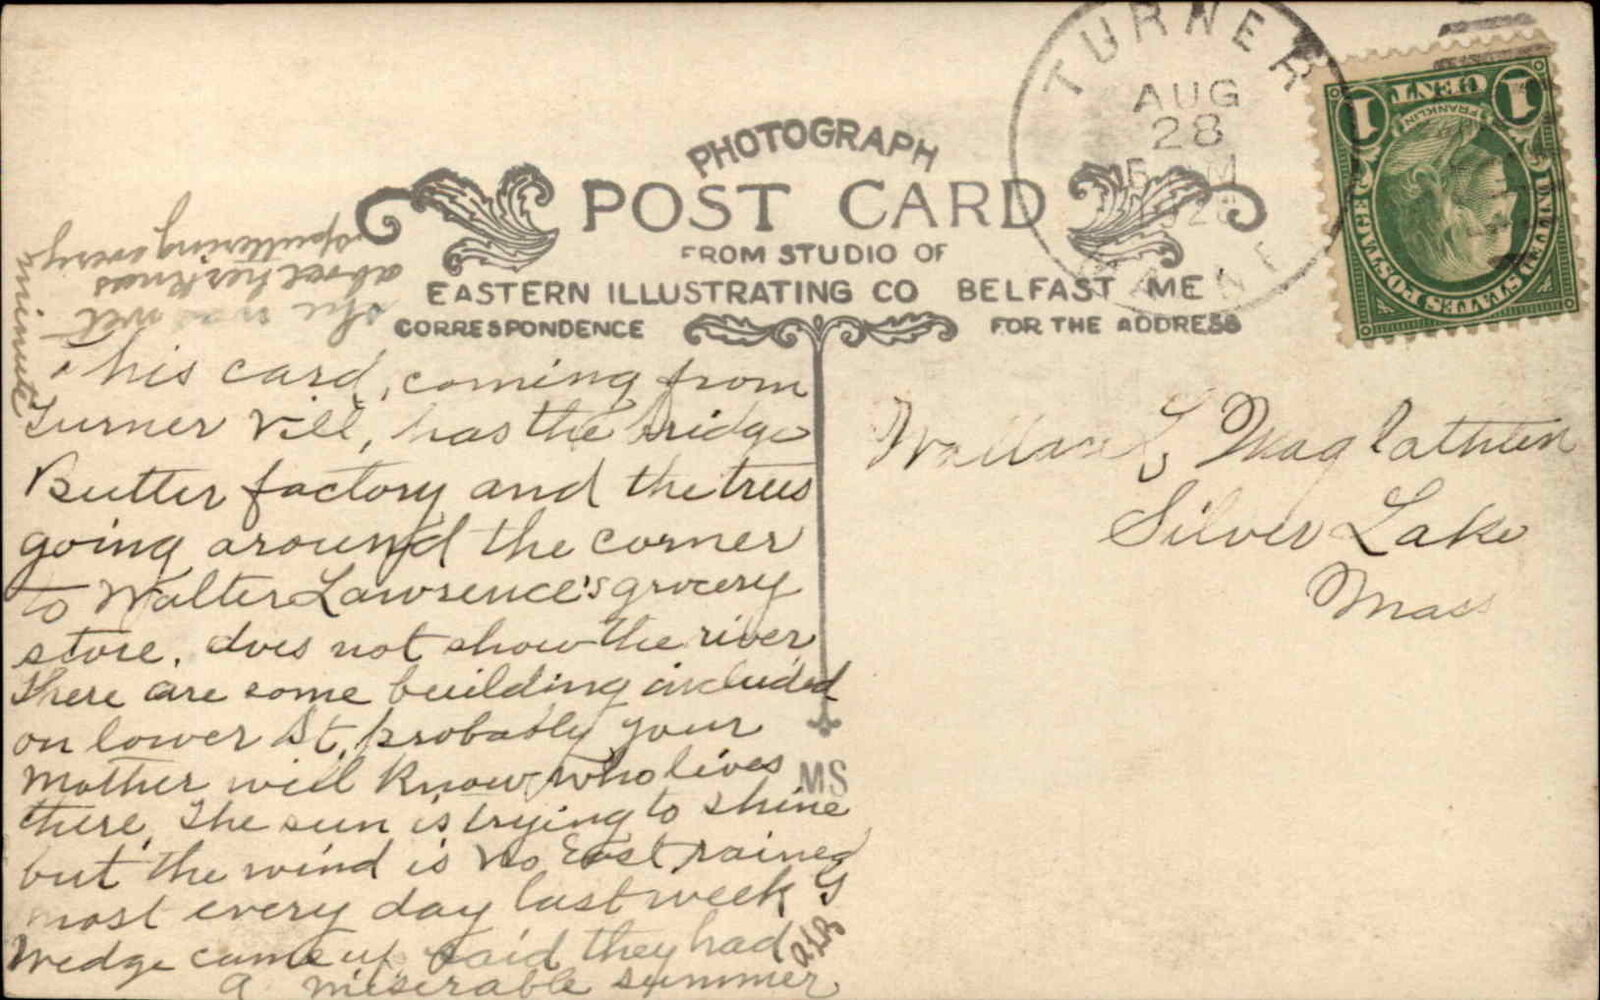 TURNER
AUG
28
MAINE
1 CENT 1
FRANKLIN
UNITED STATES POSTAGE
PHOTOGRAPH
POST CARD
FROM STUDIO OF
EASTERN ILLUSTRATING CO BELFAST ME
CORRESPONDENCE
FOR THE ADDRESS
This card, coming from
Turner Vill, has the bridge
Butter factory and the trees
going around the corner
to Walter Lawrence's grocery
store. does not show the river
There are some building included
on lower St, probably your
mother will know who lives
there. The sun is trying to shine
but the wind is No East, rained
most every day last week
Wedge came up said they had
a miserable summer
she was wet
about
sputtering every
minute
Wallace L Maglathlin
Silver Lake
Mass
MS